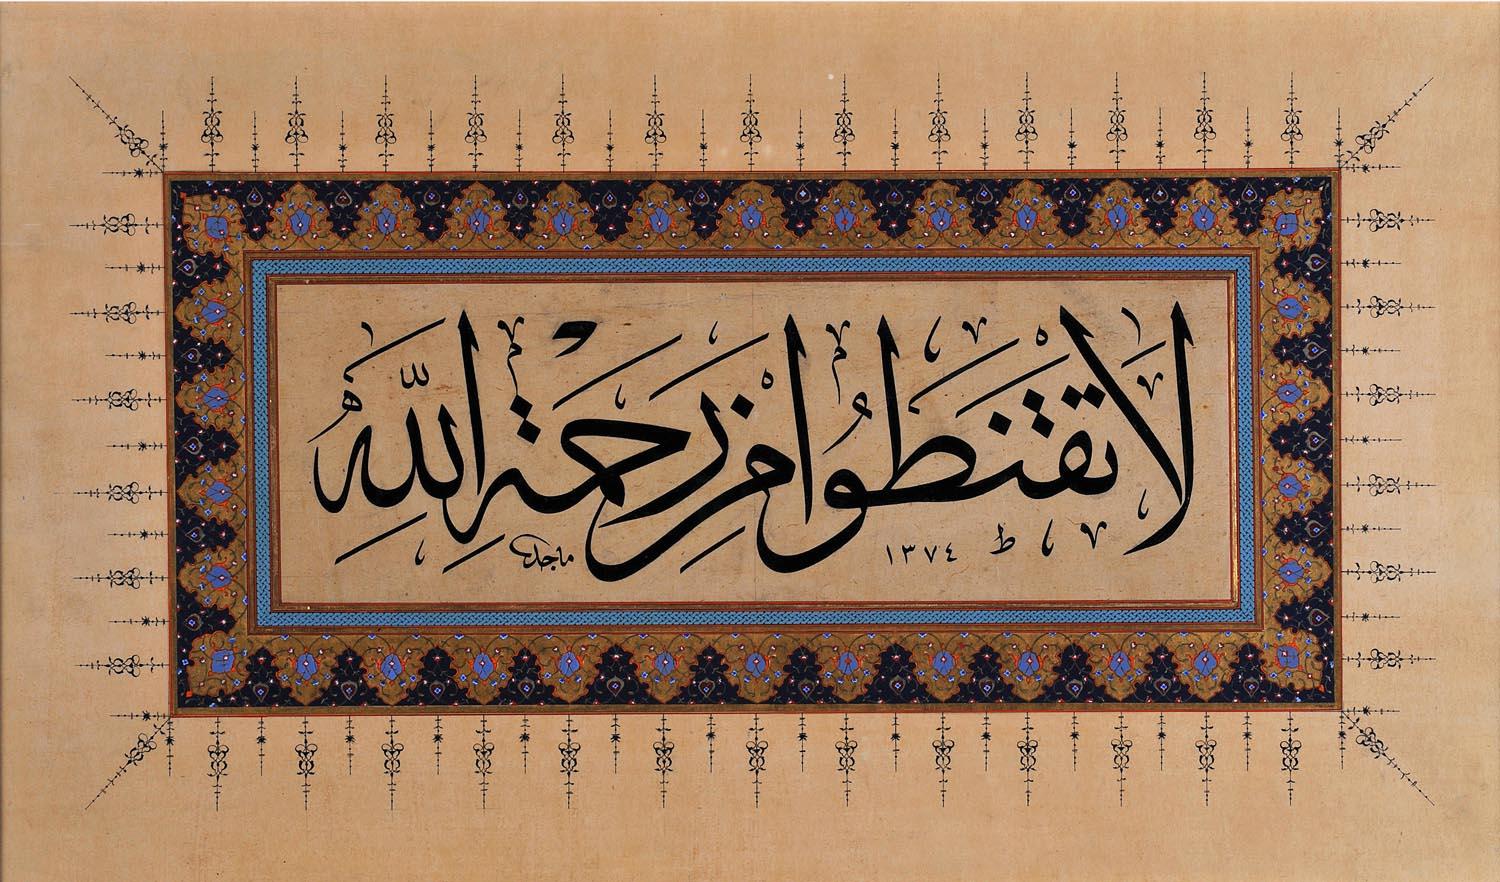 لَا تَقْنَطُوا مِنْ رَحْمَةِ اللّٰهِ
ماجد ١٣٧٤